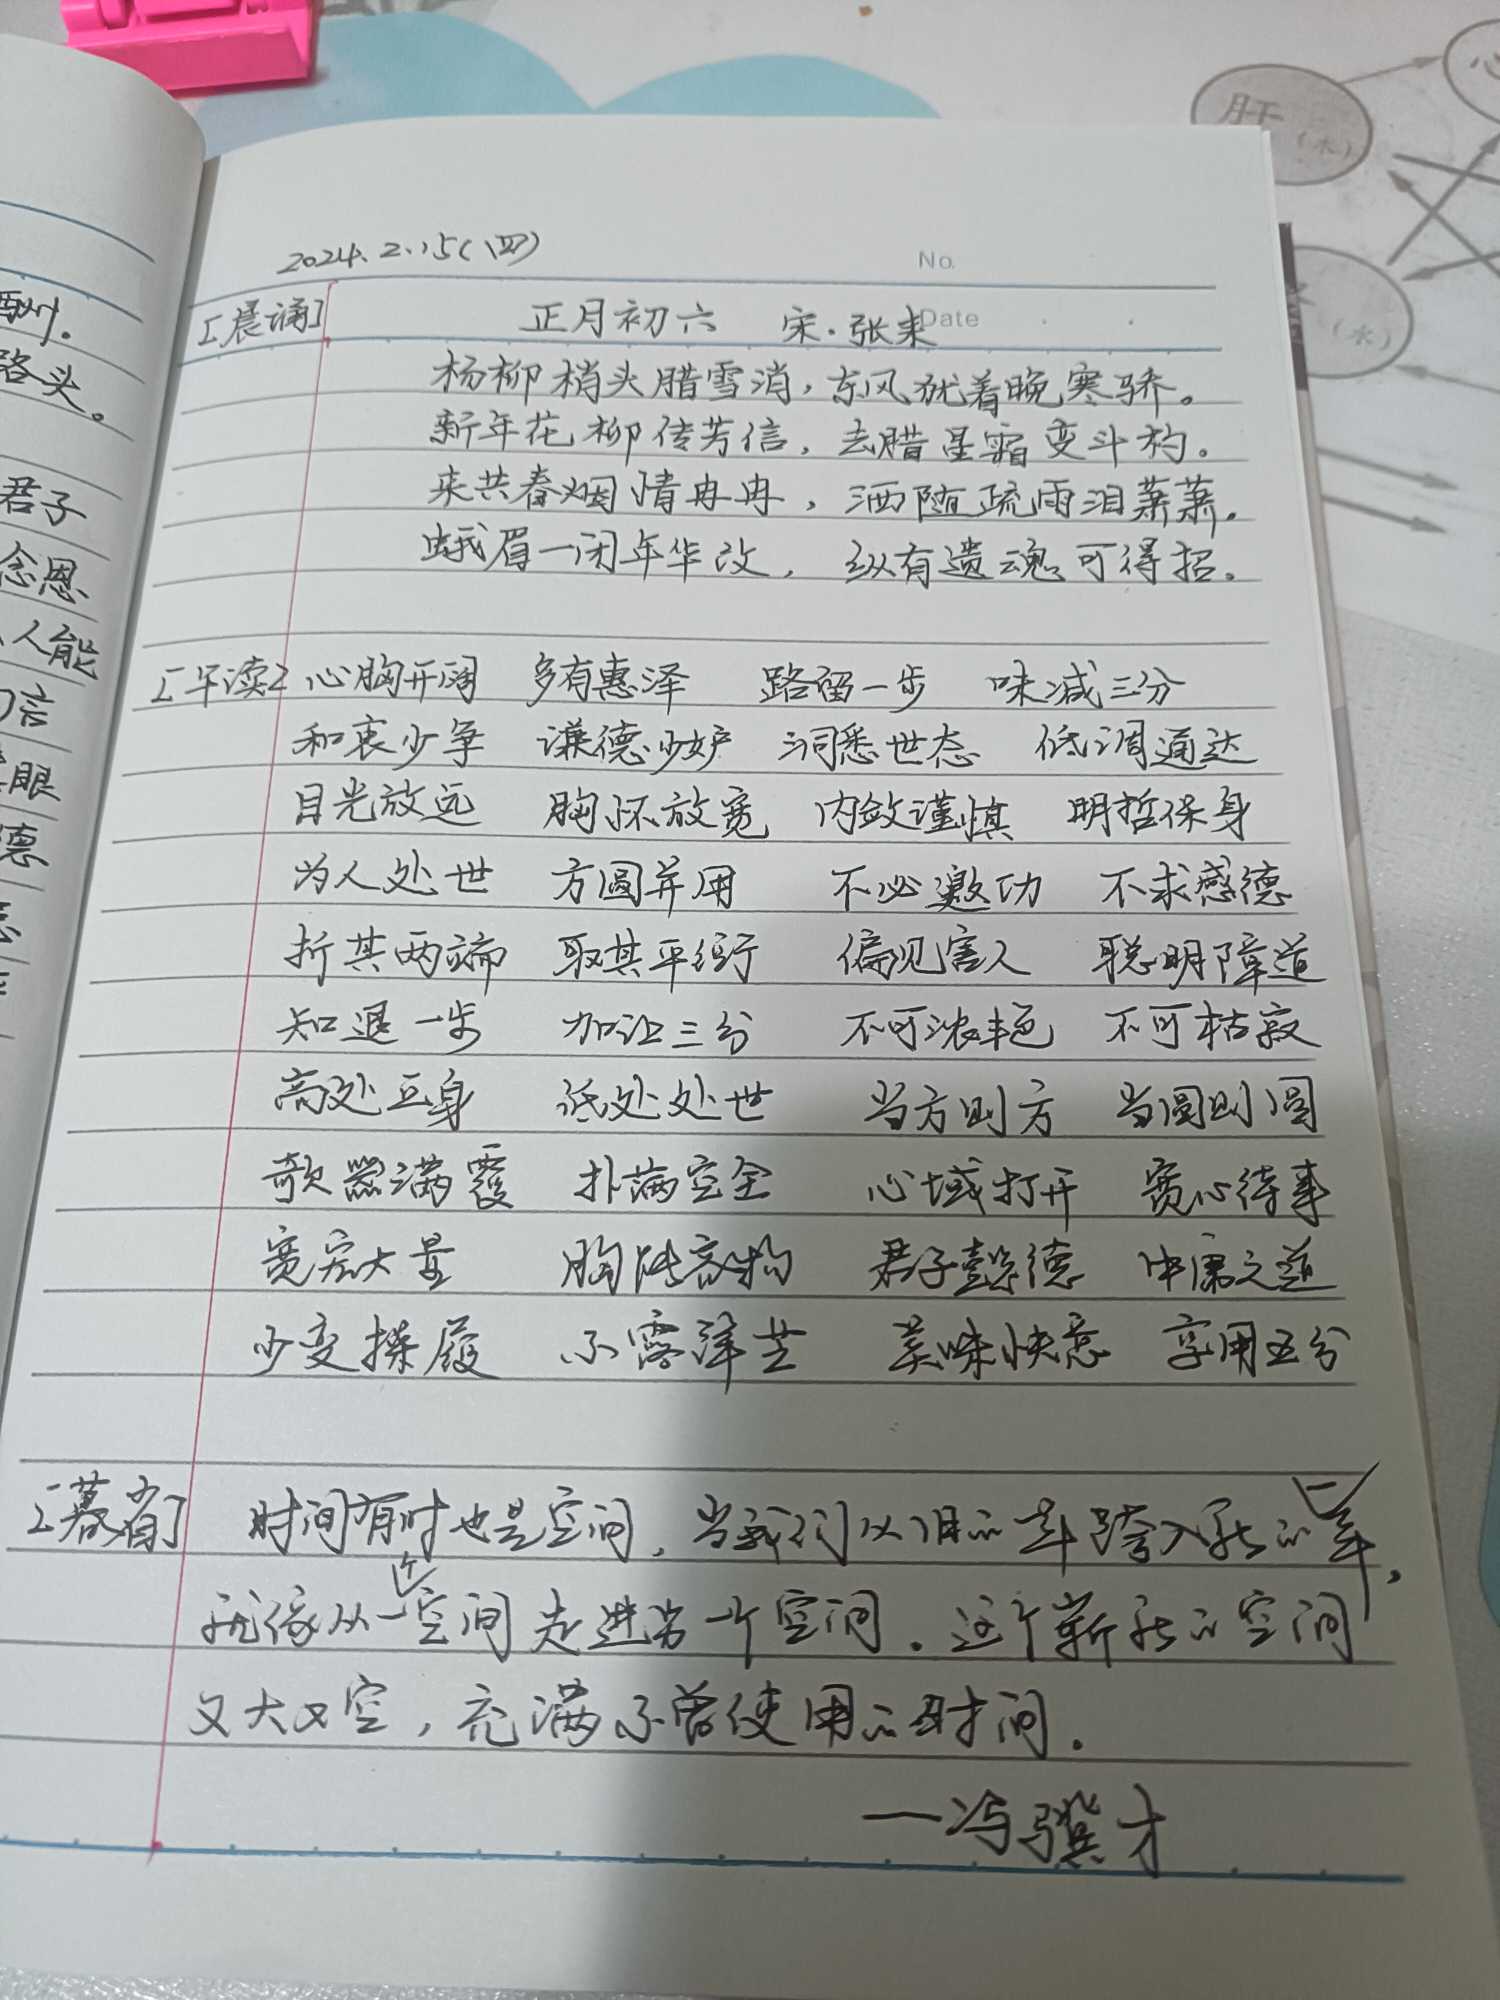 2024.2.15(四)
No.
[晨诵] 正月初六 宋·张耒
Date
杨柳梢头腊雪消,东风犹着晚寒骄。
新年花柳传芳信,去腊星霜变斗杓。
来共春烟情冉冉,洒随疏雨泪萧萧。
蛾眉一闭年华改,纵有遗魂可得招。
[午读] 心胸开阔 多有惠泽 路留一步 味减三分
和衷少争 谦德少妒 洞悉世态 低调通达
目光放远 胸怀放宽 内敛谨慎 明哲保身
为人处世 方圆并用 不必邀功 不求感德
折其两端 取其平衡 偏见害人 聪明障道
知退一步 加让三分 不可浓艳 不可枯寂
高处立身 低处处世 当方则方 当圆则圆
欹器满覆 扑满空全 心域打开 宽心待事
宽宏大量 胸能容物 君子懿德 中庸之道
少变操履 不露锋芒 美味快意 享用五分
[暮省] 时间有时也是空间,当我们从旧的一年跨入新的一年,
就像从一个空间走进另一个空间。这个崭新的空间
又大又空,充满不曾使用的时间。
——冯骥才
酬。
路头。
君子
念恩
人能
言
眼
德
肝
(木)
心
(水)